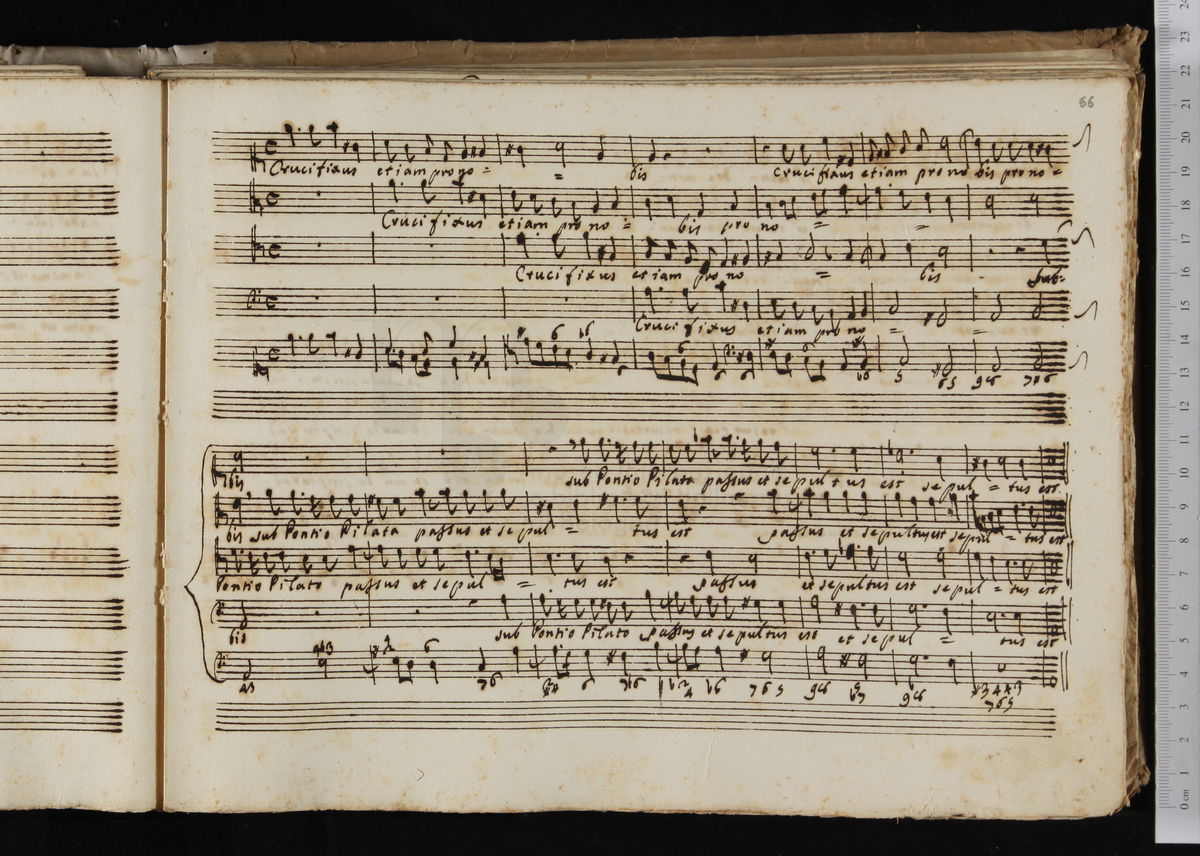 66
Crucifixus etiam pro no = = bis Crucifixus etiam pro no bis pro no =
Crucifixus etiam pro no = bis pro no = =
Crucifixus etiam pro no = bis sub
Crucifixus etiam pro no = =
6 6
6 6 6 6 6 5 6 5 9 6 7 6
bis sub Pontio Pilato passus et sepultus est sepul = tus est
bis sub Pontio Pilato passus et sepul = tus est passus et sepultus est sepul = tus est
Pontio Pilato passus et sepul = tus est passus et sepultus est sepul = tus est
bis sub Pontio Pilato passus et sepultus est et sepul = tus est
4 3 6
4 3 7 6 6 7 6 6 7 6 5 9 8
7 6 5